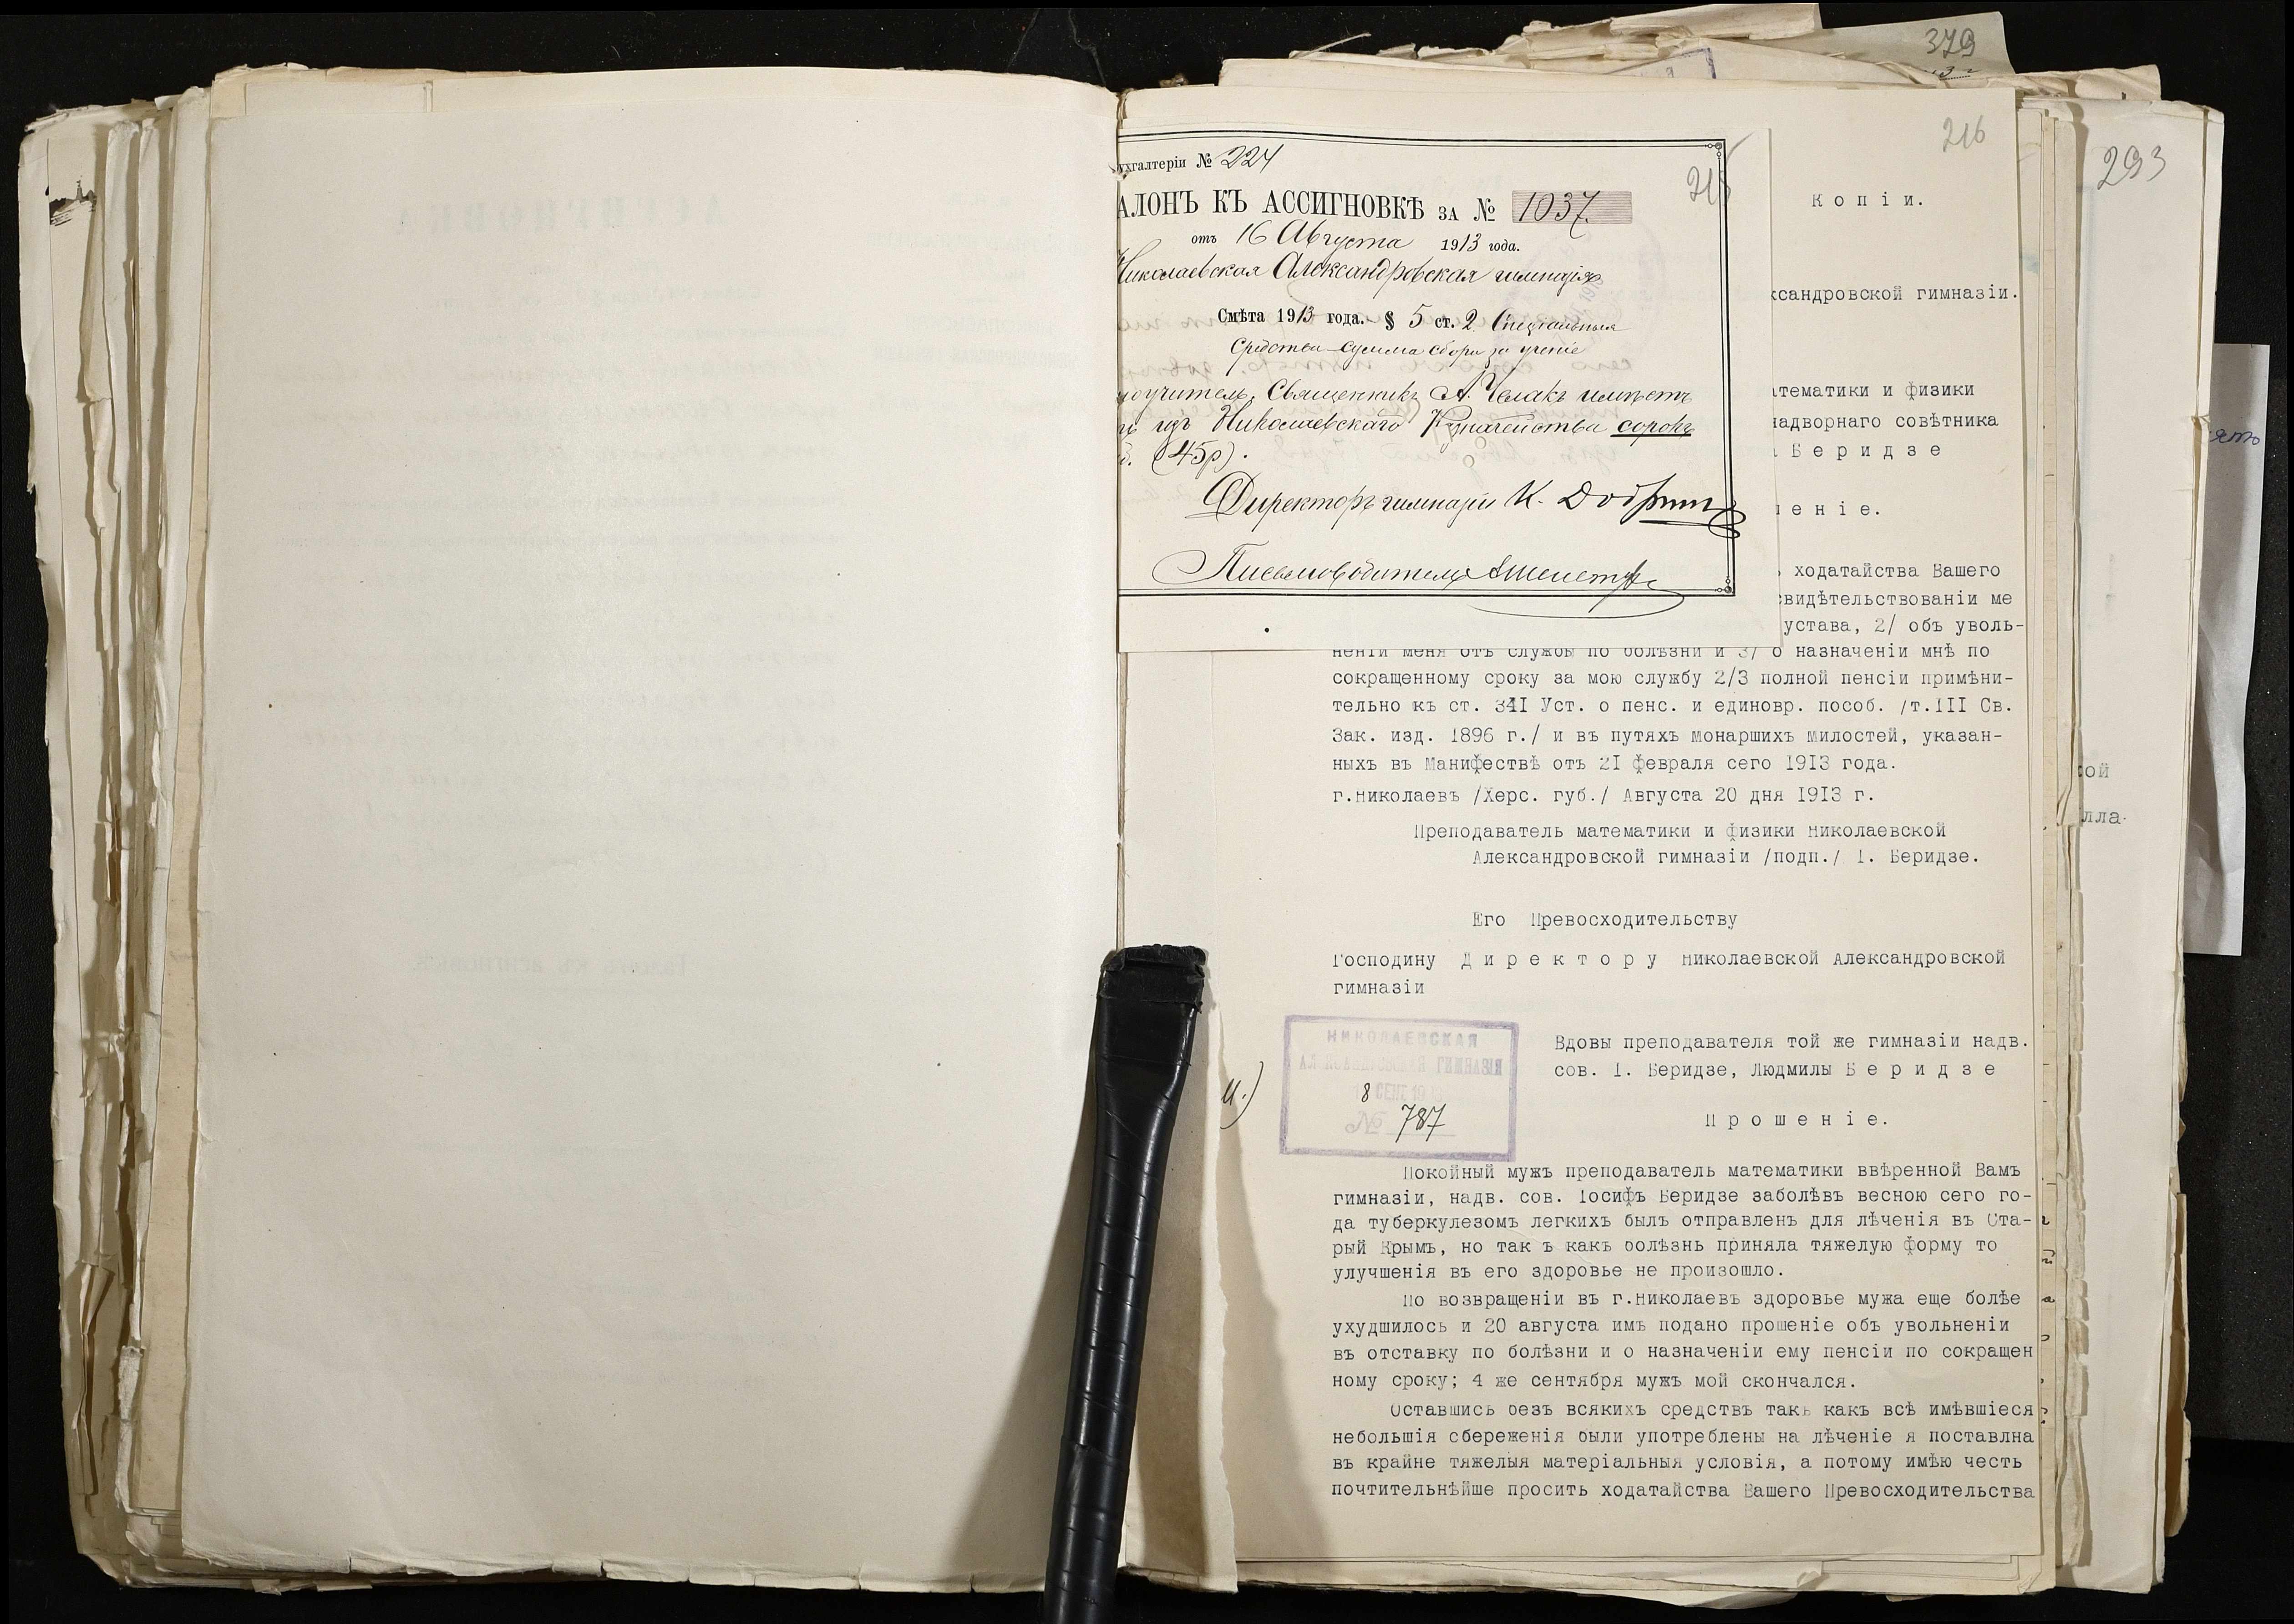 379
216
293
ухгалтеріи № 224
215
АЛОНЪ КЪ АССИГНОВКѢ ЗА № 1037.
отъ 16 Августа 1913 года.
Николаевская Александровская гимназія
Смѣта 1913 года. § 5 ст. 2. Спеціальныя
средства сумма сбора за ученіе
Священникъ А. Челакъ имѣетъ
изъ Николаевскаго Казначейства сорокъ
(45р).
Директоръ гимназіи К. Добрин
Письмоводитель
Копіи.
ксандровской гимназіи.
атематики и физики
надворнаго совѣтника
Беридзе
еніе.
ходатайства Вашего
видѣтельствованіи ме
устава, 2/ объ уволь-
неніи меня отъ службы по болѣзни и 3/ о назначеніи мнѣ по
сокращенному сроку за мою службу 2/3 полной пенсіи примѣни-
тельно къ ст. 341 Уст. о пенс. и единовр. пособ. /т.III Св.
Зак. изд. 1896 г./ и въ путяхъ монаршихъ милостей, указан-
ныхъ въ Манифествѣ отъ 21 февраля сего 1913 года.
г.Николаевъ /Херс. губ./ Августа 20 дня 1913 г.
Преподаватель математики и физики Николаевской
Александровской гимназіи /подп./ І. Беридзе.
Его Превосходительству
Господину Директору Николаевской Александровской
гимназіи
НИКОЛАЕВСКАЯ
АЛЕКСАНДРОВСКАЯ ГИМНАЗІЯ
8 СЕНТ 19
№ 787
Вдовы преподавателя той же гимназіи надв.
сов. І. Беридзе, Людмилы Беридзе
Прошеніе.
Покойный мужъ преподаватель математики ввѣренной Вамъ
гимназіи, надв. сов. Іосифъ Беридзе заболѣвъ весною сего го-
да туберкулезомъ легкихъ былъ отправленъ для лѣченія въ Ста-
рый Крымъ, но так ъ какъ болѣзнь приняла тяжелую форму то
улучшенія въ его здоровье не произошло.
По возвращеніи въ г.Николаевъ здоровье мужа еще болѣе
ухудшилось и 20 августа имъ подано прошеніе объ увольненіи
въ отставку по болѣзни и о назначеніи ему пенсіи по сокращен
ному сроку; 4 же сентября мужъ мой скончался.
Оставшись безъ всякихъ средствъ такъ какъ всѣ имѣвшіеся
небольшія сбереженія были употреблены на лѣченіе я поставлна
въ крайне тяжелыя матеріальныя условія, а потому имѣю честь
почтительнѣйше просить ходатайства Вашего Превосходительства
ой
лла-